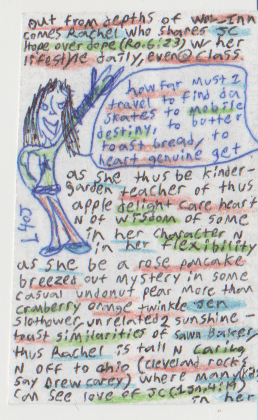 out from depths of Wal-Inn
comes Rachel who shares JC
Hope over dope (Ro.6:23) w/ her
lifestyle daily, even@class.
how far must I
travel to find da
skates to mobile
destiny, to butter
toast bread, to
heart genuine get
as she thus be kinder-
garden teacher of thus
apple delight care heart
N of wisdom of some
in her character N
in her flexibility
as she be a rose pancake
breezed out mystery in some
casual undonut pear more than
cranberry orange twinkle Jen
Slothower unrelated sunshine -
toast similarities of Sawn Baker
thus Rachel is tall N caring
N off to ohio (cleveland rocks
say Drew carey) where many
can see love of JC (1Jn4:14)
in her